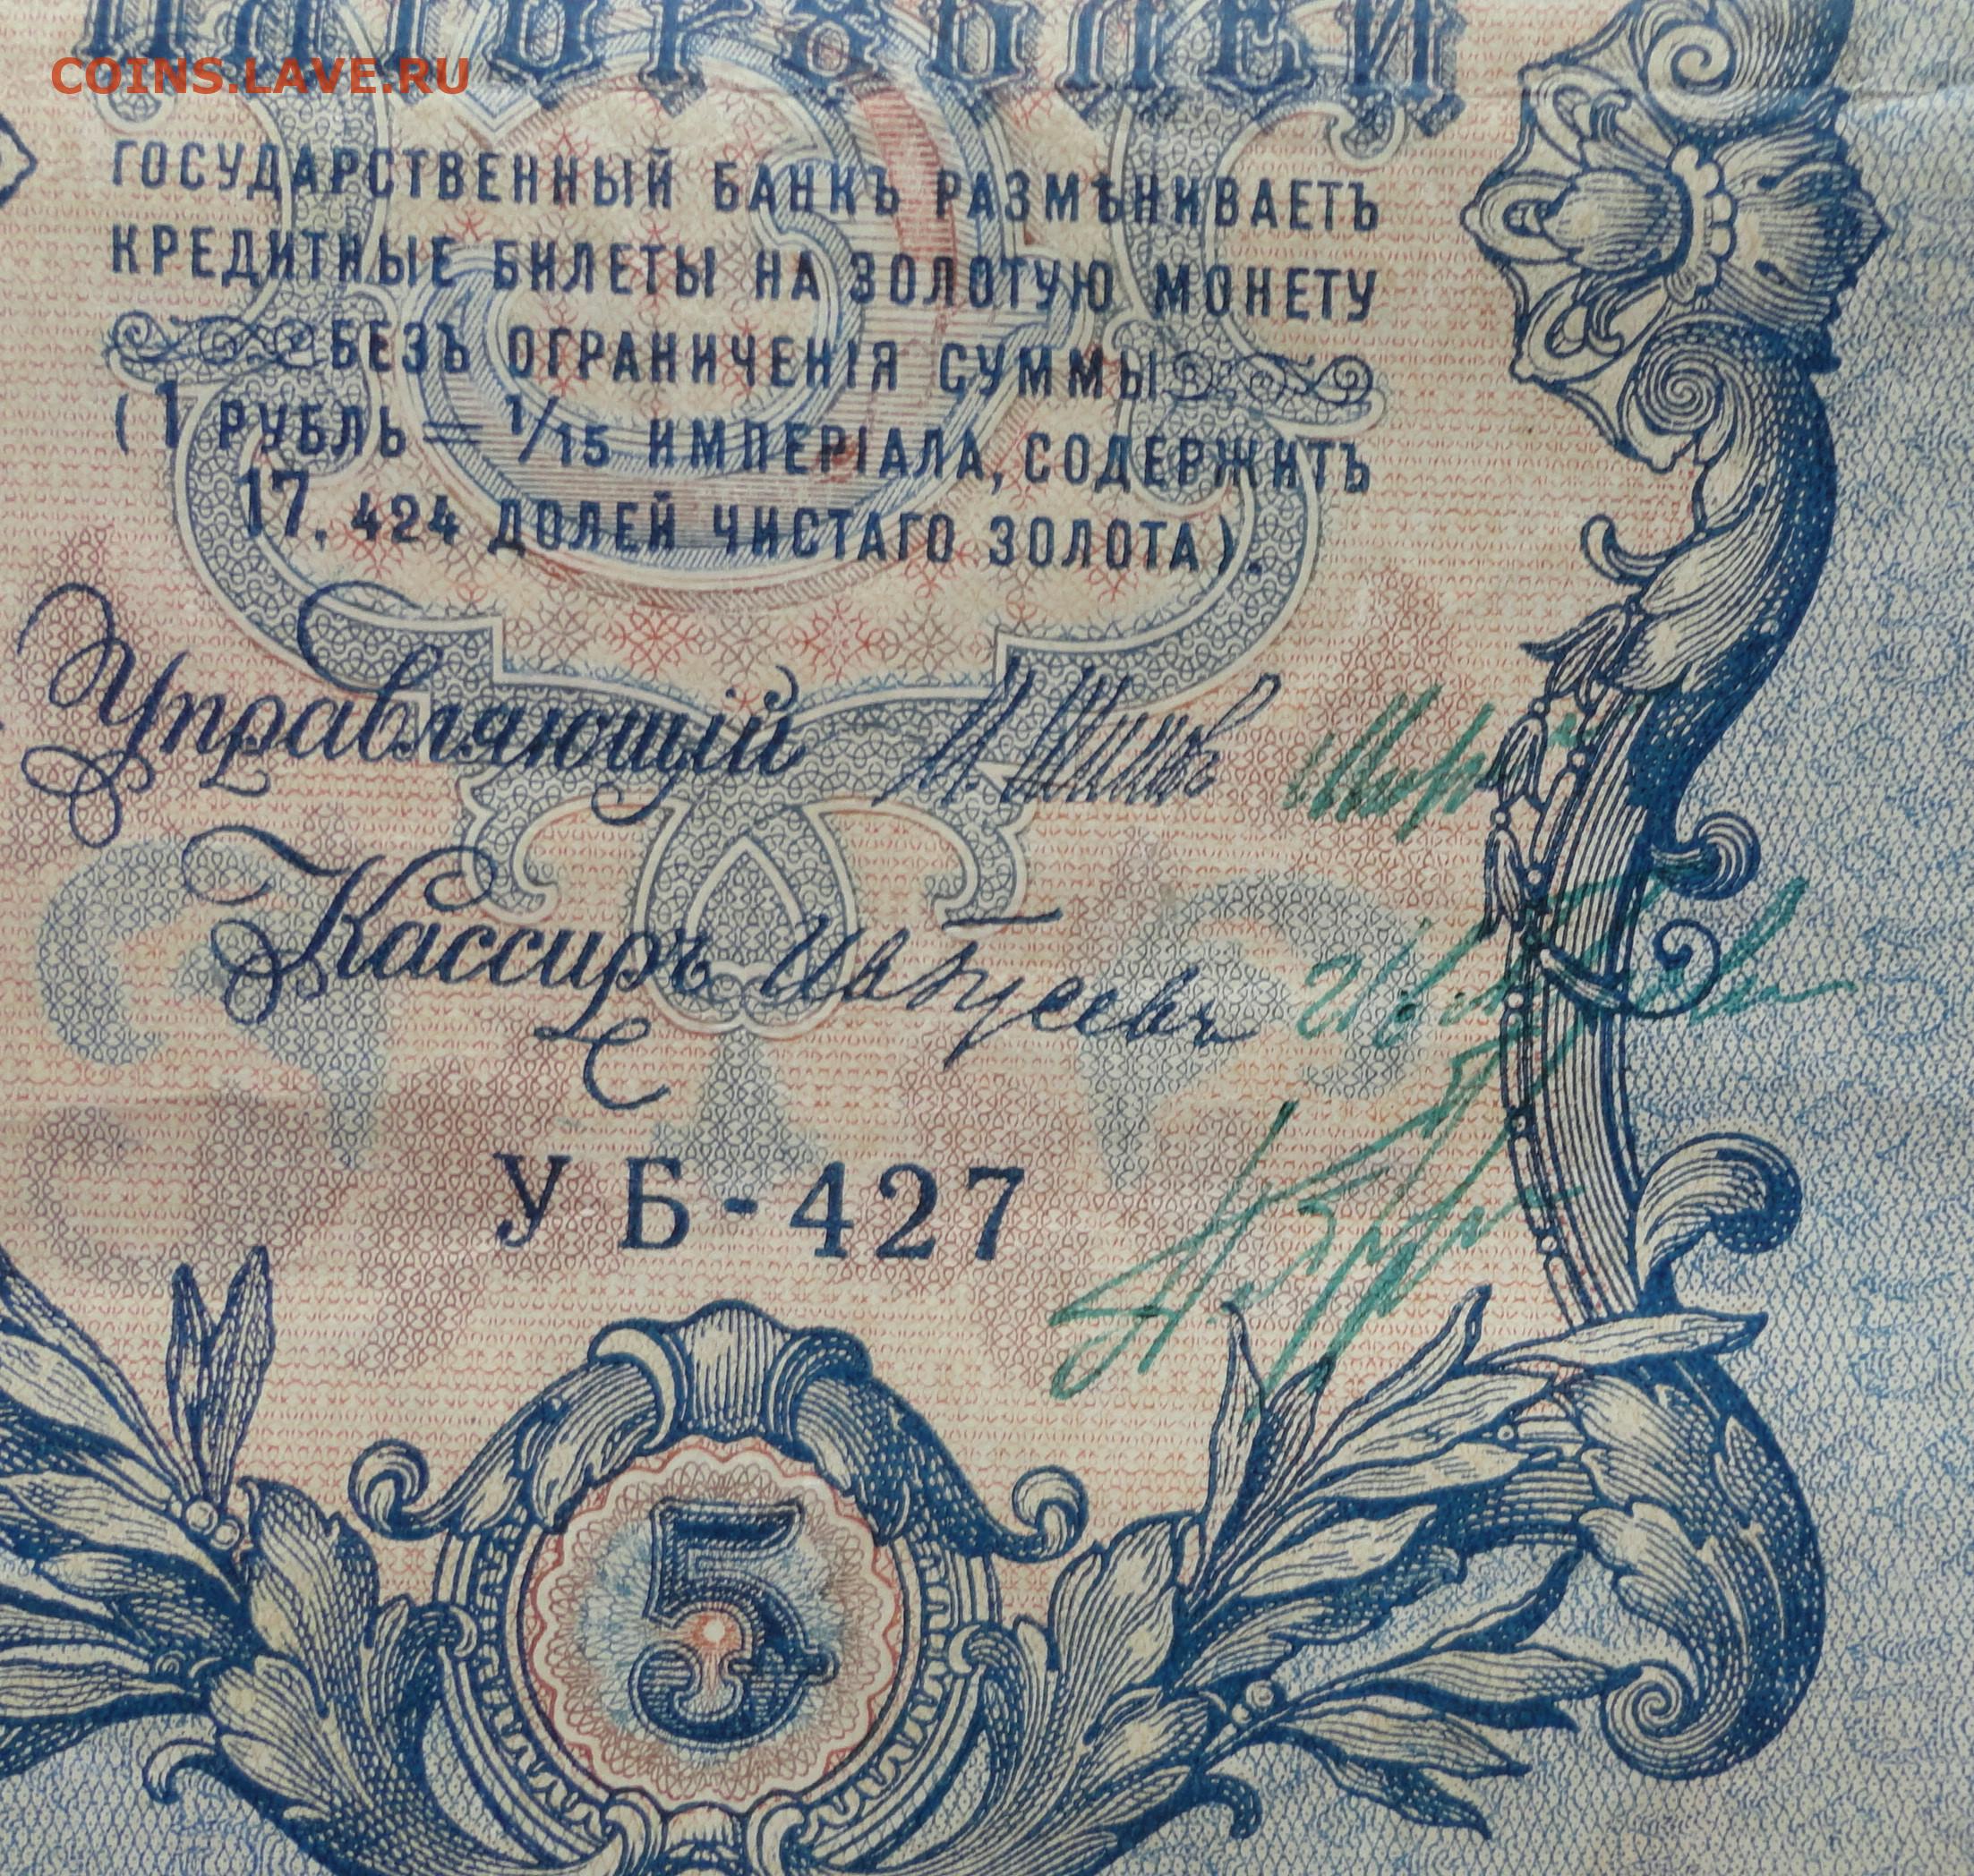 ПЯТЬ РУБЛЕЙ
COINS.LAVE.RU
ГОСУДАРСТВЕННЫЙ БАНКЪ РАЗМѢНИВАЕТЪ
КРЕДИТНЫЕ БИЛЕТЫ НА ЗОЛОТУЮ МОНЕТУ
БЕЗЪ ОГРАНИЧЕНІЯ СУММЫ
(1 РУБЛЬ = 1/15 ИМПЕРІАЛА, СОДЕРЖИТЪ
17,424 ДОЛЕЙ ЧИСТАГО ЗОЛОТА).
Управляющій И. Шиповъ
Кассиръ
УБ-427
5